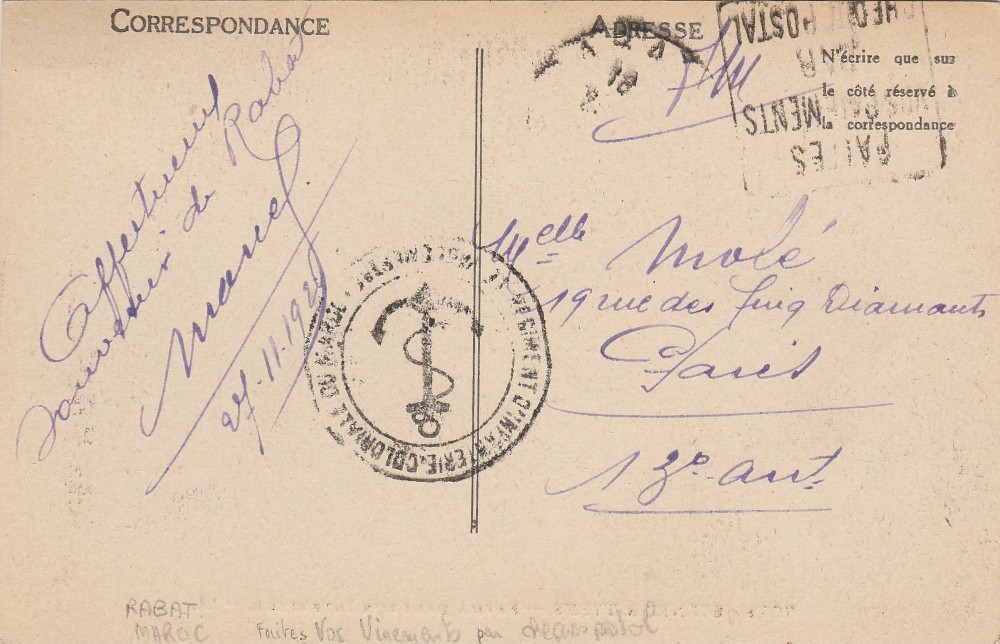 CORRESPONDANCE
ADRESSE
N'écrire que sur
le côté réservé à
la correspondance
FM
FAITES
PAR
CHEQUE POSTAL
Affectueux
souvenir de Rabat
Marcel
Melle Molé
19 rue des Cinq Diamants
Paris
13e arrt
REGIMENT D'INFANTERIE COLONIALE DU MAROC
RABAT
MAROC
Faites Vos Virements par cheque postal